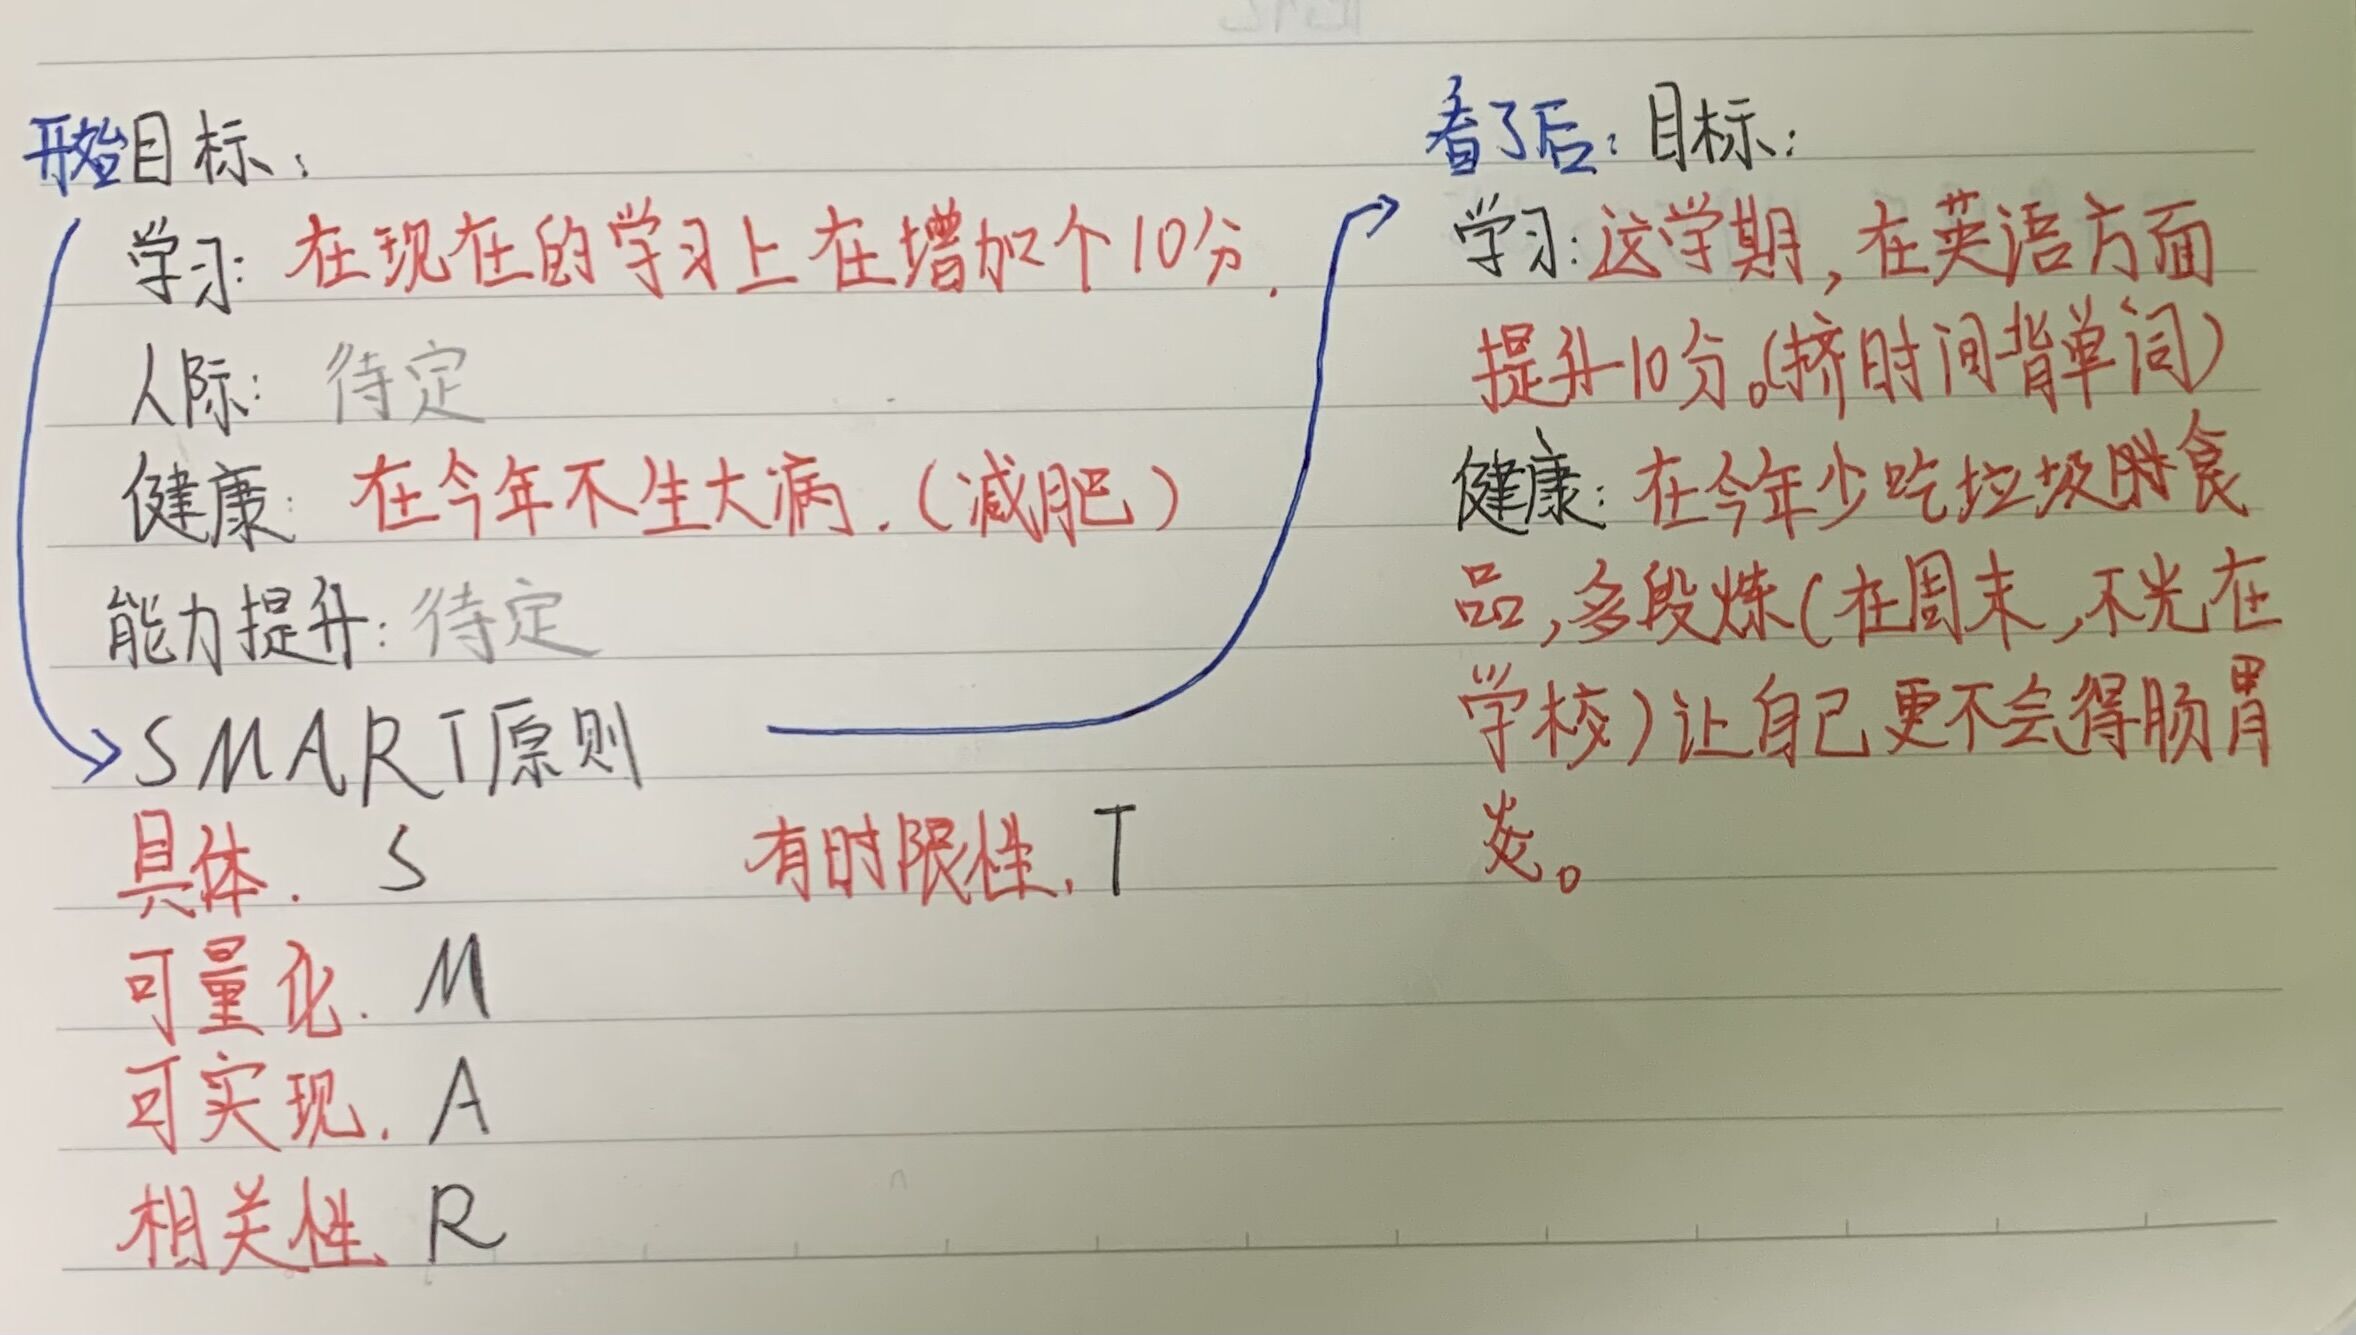 开始目标：
学习：在现在的学习上在增加个10分.
人际：待定
健康：在今年不生大病.（减肥）
能力提升：待定
SMART原则
具体. S
有时限性. T
可量化. M
可实现. A
相关性. R
看了后：目标：
学习：这学期，在英语方面
提升10分。（挤时间背单词）
健康：在今年少吃垃圾食
品，多段炼（在周末，不光在
学校）让自己更不会得肠胃
炎。